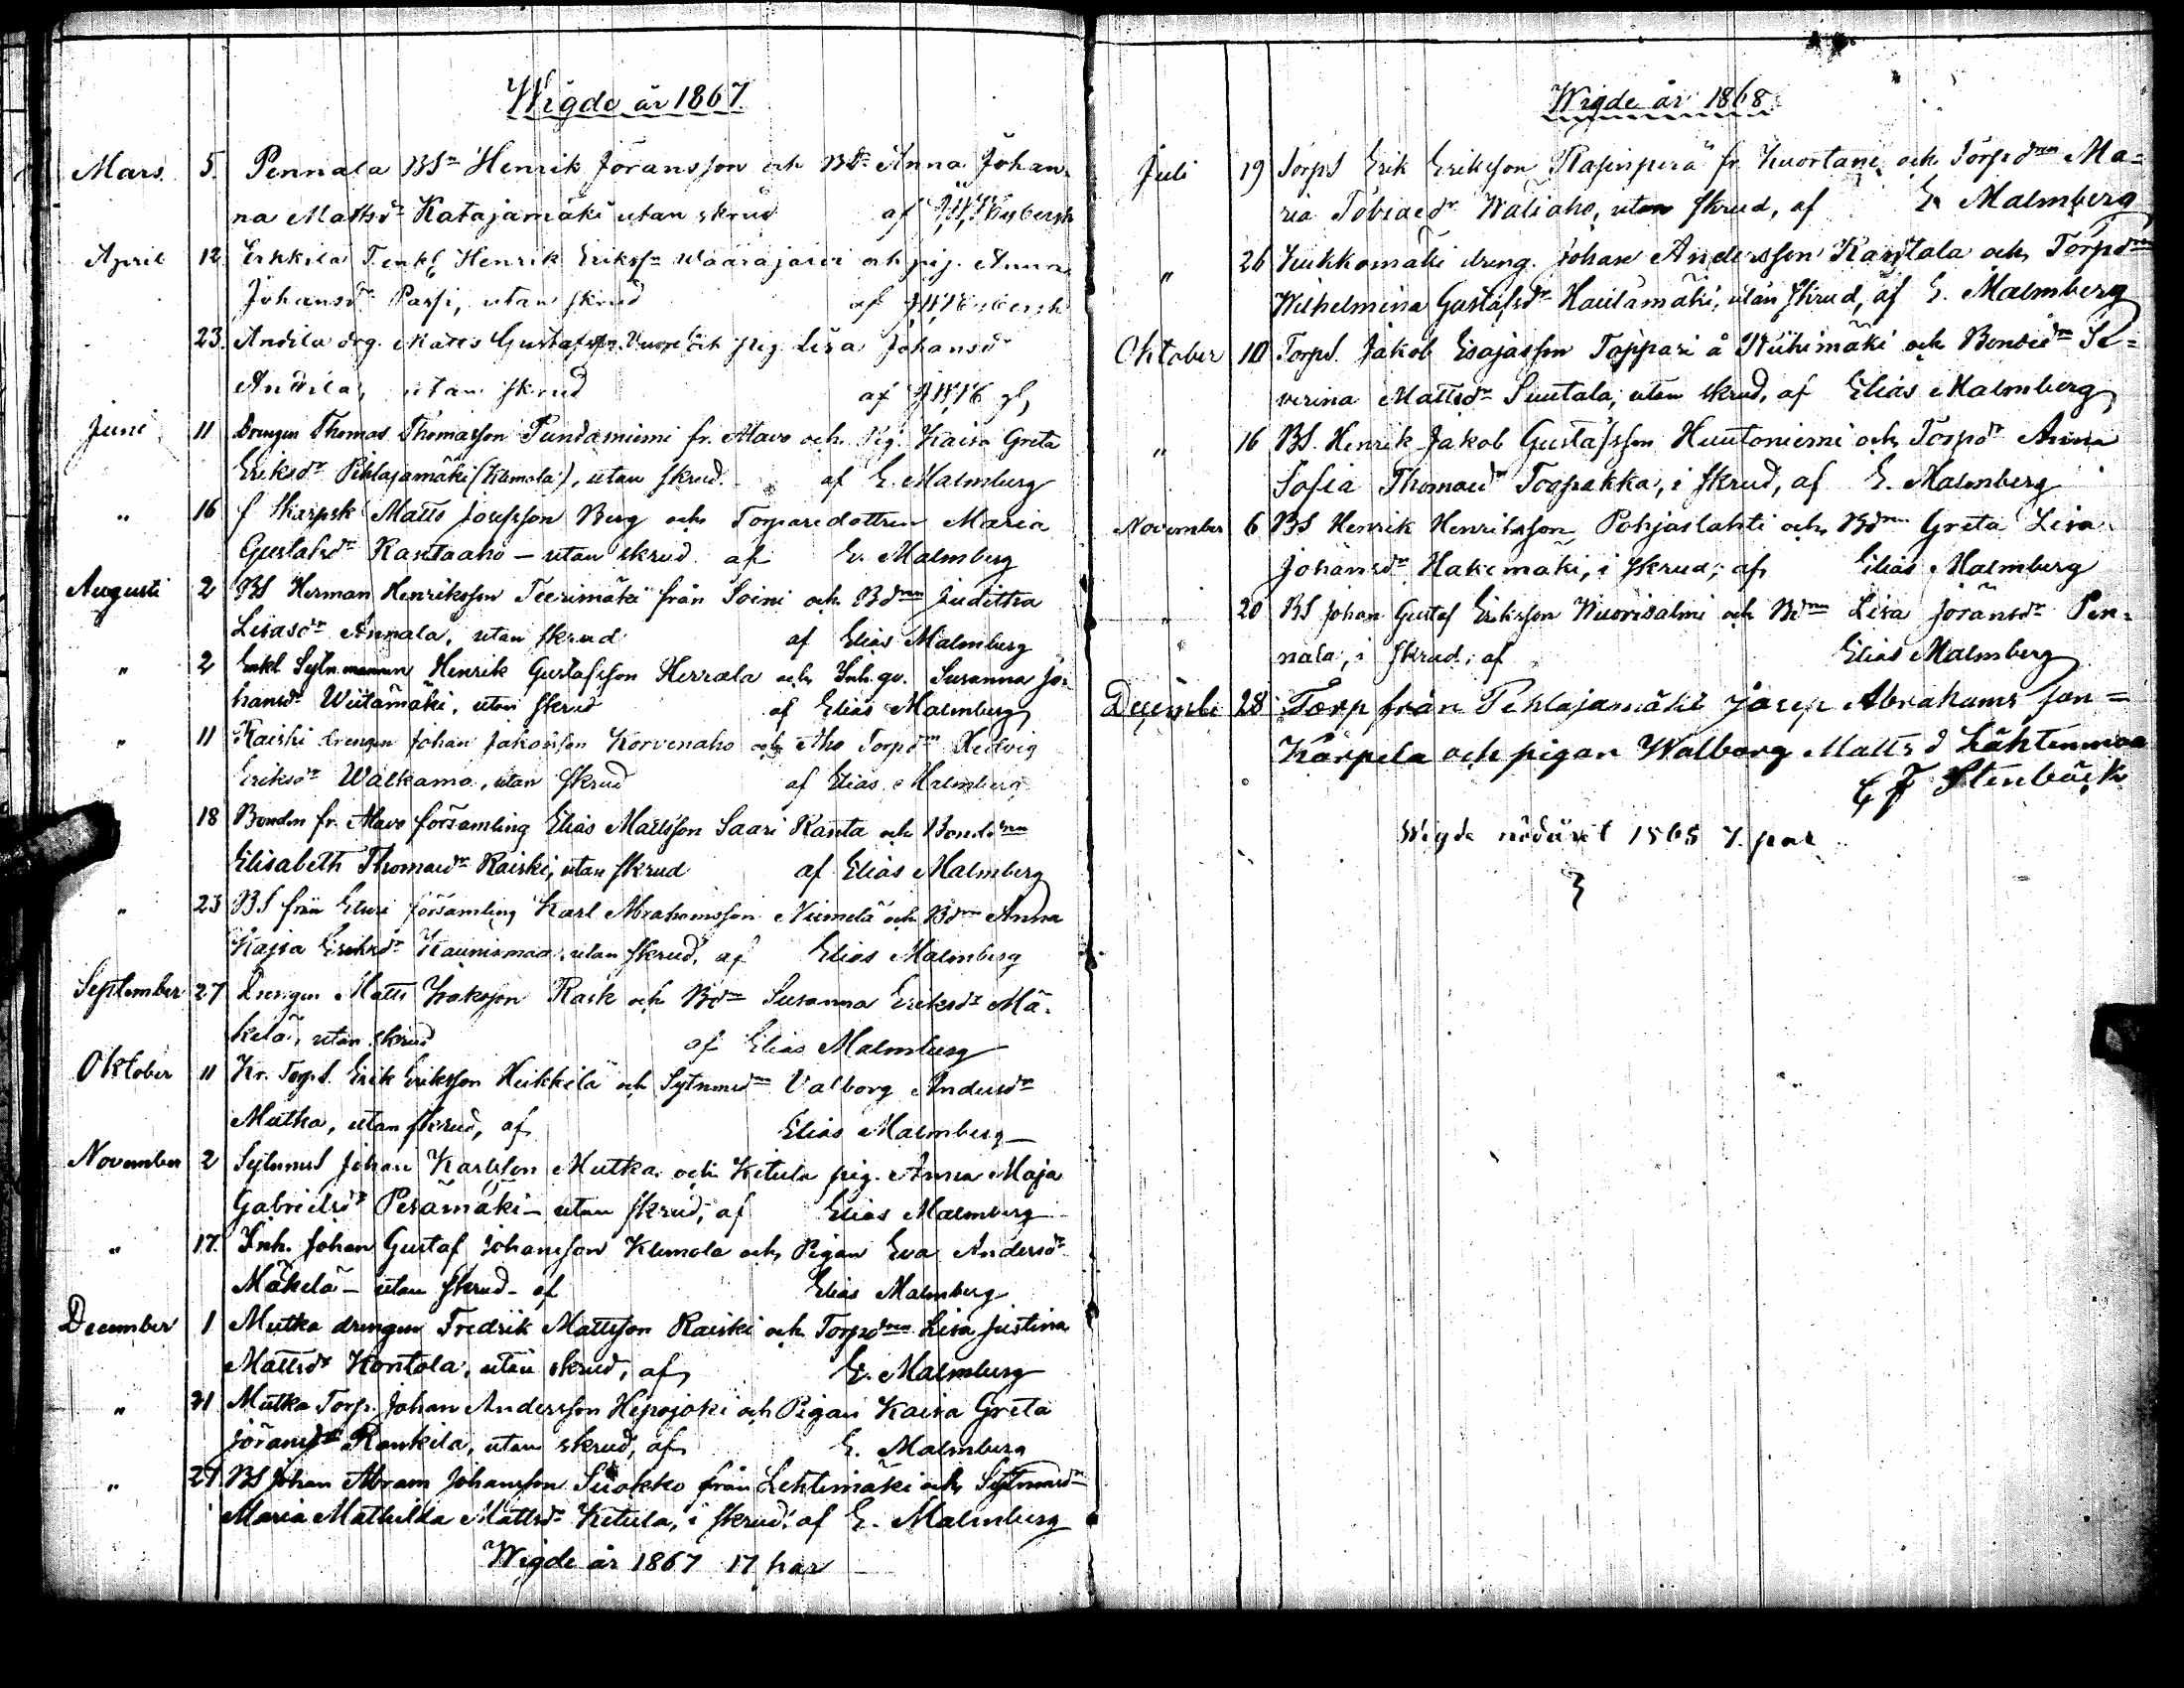 Wigde år 1867.
Mars. 5. Pennala BSn Henrik Jöransson och Bdr Anna Johan-
na Mattsdr Katajamäki utan skrud af
April 12 Erkkilä Henrik Erikss. Wäärajärvi och pig. Anna
Johansdr Passi, utan skrud af
23. Anttila drg. Matts Gustafss. Vuore och pig. Lisa Johansdr
Anttila, utan skrud af
Juni 11 Drengen Thomas Thomasson Pundaniemi fr. Alavo och Pig. Kaisa Greta
Eriksdr Pihlajamäki (Kamola), utan skrud. af E. Malmberg
" 16 f Skarpsk Matts Josefsson Berg och Torparedottren Maria
Gustafsdr Rantaaho – utan skrud af E. Malmberg
Augusti 2 BS Herman Henriksson Teerimäki från Soini och Bdren Juditha
Lisasdr Annala, utan skrud af Elias Malmberg
" 2 Enkl Sytn.mannen Henrik Gustafsson Herrala och Inh.qv. Susanna Jo-
hansdr Wiitamäki, utan skrud af Elias Malmberg
" 11 Raiski drengen Johan Jakobsson Korvenaho och Aho Torpdren Hedvig
Eriksdr Walkama, utan skrud af Elias Malmberg
18 Bonden fr. Alavo församling Elias Mattsson Saari Ranta och Bondedren
Elisabeth Thomasdr Raiski, utan skrud af Elias Malmberg
" 23 BS från Etseri församling Karl Abrahamsson Niemelä och Bdren Anna
Kajsa Eriksdr Kaunismaa, utan skrud, af Elias Malmberg
September 27 Drengen Matts Isaksson Rask och Bdr Susanna Eriksdr Mä-
kelä, utan skrud af Elias Malmberg
Oktober 11 Kr. Torp.S. Erik Eriksson Heikkilä och Sytnmsdr Valborg Andersdr
Mutka, utan skrud, af Elias Malmberg
November 2 SytnmsS Johan Karlsson Mutka och Ketula pig. Anna Maja
Gabrielsdr Perämäki – utan skrud, af Elias Malmberg
" 17. Inh. Johan Gustaf Johansson Klemola och Pigan Eva Andersdr
Mäkelä – utan skrud – af Elias Malmberg
December 1 Mutka drengen Fredrik Mattsson Raiski och Torpdren Lisa Justina
Mattsdr Kontola, utan skrud, af E. Malmberg
" 21 Mutka Torp. Johan Andersson Hepojoki och Pigan Kaisa Greta
Jöransdr Rankila, utan skrud, af E. Malmberg
" 27 BS Johan Abram Johansson Suokko från Lehtimäki och Sytnmsdr
Maria Mathilda Mattsdr Ketula, i skrud, af E. Malmberg
Wigde år 1867 17 par
Wigde år 1868.
Juli 19 TorpS Erik Eriksson Rasinperä fr. Kuortane och Torpdren Ma=
ria Tobiaedr Waliaho, utan skrud, af E. Malmberg
" 26 Kukkomäki dreng. Johan Andersson Rantala och Torpdren
Wilhelmina Gustafsdr Hautamäki, utan skrud, af E. Malmberg
Oktober 10 TorpS. Jakob Esajasson Toppari å Riihimäki och Bondedren Se=
verina Mattsdr Suutala, utan skrud, af Elias Malmberg
" 16 BS. Henrik Jakob Gustafsson Huutoniemi och Torpdr Anna
Sofia Thomasdr Torpakka, i skrud, af E. Malmberg
November 6 BS Henrik Henriksson Pohjaslahti och Bdren Greta Lisa
Johansdr Hakomäki, i skrud, af Elias Malmberg
" 20 BS Johan Gustaf Eriksson Wuorisalmi och Bdren Lisa Jöransdr Pen-
nala, i skrud, af Elias Malmberg
Decembe 28 Torp från Pihlajamäki Josep Abrahams son =
Kärpelä och pigan Walborg Matts d Lähtenmaa
C F Stenbäck
Wigde nödåret 1868 7. par